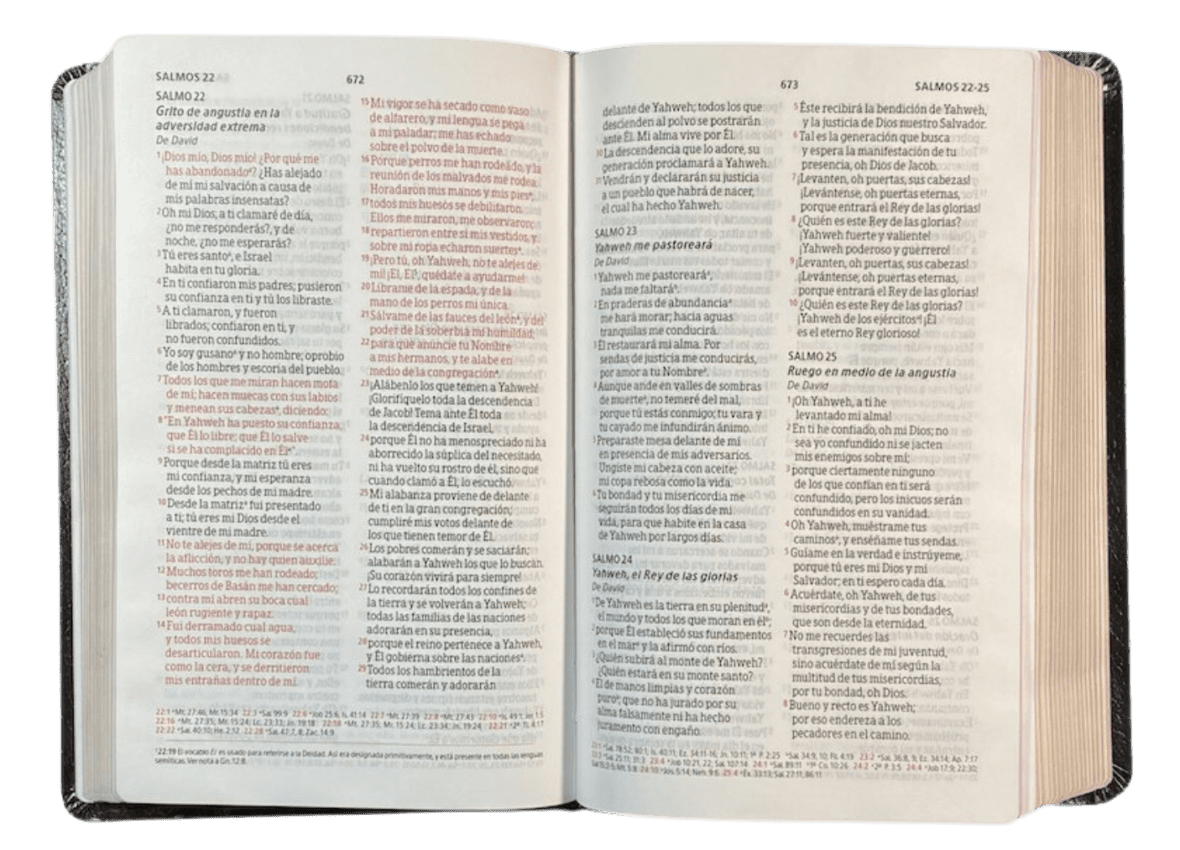 SALMOS 22
672
SALMO 22
Grito de angustia en la
adversidad extrema
De David
1¡Dios mío, Dios mío! ¿Por qué me
has abandonadoª? ¿Has alejado
de mí mi salvación a causa de
mis palabras insensatas?
2Oh mi Dios, a ti clamaré de día,
¿no me responderás?, y de
noche, ¿no me esperarás?
3Tú eres santoª, e Israel
habita en tu gloria.
4En ti confiaron mis padres; pusieron
su confianza en ti y tú los libraste.
5A ti clamaron, y fueron
librados; confiaron en ti, y
no fueron confundidos.
6Yo soy gusanoª y no hombre; oprobio
de los hombres y escoria del pueblo.
7Todos los que me miran hacen mofa
de mí; hacen muecas con sus labios
y menean sus cabezasª, diciendo:
8"En Yahweh ha puesto su confianza,
que Él lo libre; que Él lo salve
si se ha complacido en Élª".
9Porque desde la matriz tú eres
mi confianza, y mi esperanza
desde los pechos de mi madre.
10Desde la matrizª fui presentado
a ti; tú eres mi Dios desde el
vientre de mi madre.
11No te alejes de mí, porque se acerca
la aflicción, y no hay quien auxilie.
12Muchos toros me han rodeado;
becerros de Basán me han cercado;
13contra mí abren su boca cual
león rugiente y rapaz.
14Fui derramado cual agua,
y todos mis huesos se
desarticularon. Mi corazón fue
como la cera, y se derritieron
mis entrañas dentro de mí.
15Mi vigor se ha secado como vaso
de alfarero, y mi lengua se pega
a mi paladar; me has echado
sobre el polvo de la muerte.
16Porque perros me han rodeado, y la
reunión de los malvados me rodea.
Horadaron mis manos y mis piesª;
17todos mis huesos se debilitaron.
Ellos me miraron, me observaron;
18repartieron entre sí mis vestidos, y
sobre mi ropa echaron suertesª.
19¡Pero tú, oh Yahweh, no te alejes de
mí! ¡El, El¹, quédate a ayudarme!
20Líbrame de la espada, y de la
mano de los perros mi única.
21Sálvame de las fauces del leónª, y del
poder de la soberbia mi humildad,
22para que anuncie tu Nombre
a mis hermanos, y te alabe en
medio de la congregaciónª.
23¡Alábenlo los que temen a Yahweh!
¡Glorifíquelo toda la descendencia
de Jacob! Tema ante Él toda
la descendencia de Israel,
24porque Él no ha menospreciado ni ha
aborrecido la súplica del necesitado,
ni ha vuelto su rostro de él, sino que
cuando clamó a Él, lo escuchó.
25Mi alabanza proviene de delante
de ti en la gran congregación;
cumpliré mis votos delante de
los que tienen temor de Él.
26Los pobres comerán y se saciarán;
alabarán a Yahweh los que lo buscan.
¡Su corazón vivirá para siempre!
27Lo recordarán todos los confines de
la tierra y se volverán a Yahweh;
todas las familias de las naciones
adorarán en su presencia,
28porque el reino pertenece a Yahweh,
y Él gobierna sobre las nacionesª.
29Todos los hambrientos de la
tierra comerán y adorarán
22:1 ªMt. 27:46; Mr. 15:34 22:3 ªSal. 99:9 22:6 ªJob 25:6; Is. 41:14 22:7 ªMt. 27:39 22:8 ªMt. 27:43 22:10 ªIs. 49:1; Jer. 1:5
22:16 ªMt. 27:35; Mr. 15:24; Lc. 23:33; Jn. 19:18 22:18 ªMt. 27:35; Mr. 15:24; Lc. 23:34; Jn. 19:24 22:21 ª2ª Ti. 4:17
22:22 ªSal. 40:10; He. 2:12 22:28 ªSal. 47:7, 8; Zac. 14:9
¹22:19 El vocablo El es usado para referirse a la Deidad. Así era designada primitivamente, y está presente en todas las lenguas
semíticas. Ver nota a Gn. 12:8.
673
SALMOS 22-25
delante de Yahweh; todos los que
descienden al polvo se postrarán
ante Él. Mi alma vive por Él.
30La descendencia que lo adore, su
generación proclamará a Yahweh.
31Vendrán y declararán su justicia
a un pueblo que habrá de nacer,
el cual ha hecho Yahweh.
SALMO 23
Yahweh me pastoreará
De David
1Yahweh me pastorearáª,
nada me faltaráᵇ.
2En praderas de abundanciaª
me hará morar; hacia aguas
tranquilas me conducirá.
3Él restaurará mi alma. Por
sendas de justicia me conducirás,
por amor a tu Nombreª.
4Aunque ande en valles de sombras
de muerteª, no temeré del mal,
porque tú estás conmigo; tu vara y
tu cayado me infundirán ánimo.
5Preparaste mesa delante de mí
en presencia de mis adversarios.
Ungiste mi cabeza con aceite;
mi copa rebosa como la vida.
6Tu bondad y tu misericordia me
seguirán todos los días de mi
vida, para que habite en la casa
de Yahweh por largos días.
SALMO 24
Yahweh, el Rey de las glorias
De David
1De Yahweh es la tierra en su plenitudª,
el mundo y todos los que moran en élᵇ;
2porque Él estableció sus fundamentos
en el marª y la afirmó con ríos.
3¿Quién subirá al monte de Yahweh?
¿Quién estará en su monte santo?
4El de manos limpias y corazón
puroª; que no ha jurado por su
alma falsamente ni ha hecho
juramento con engaño.
5Éste recibirá la bendición de Yahweh,
y la justicia de Dios nuestro Salvador.
6Tal es la generación que busca
y espera la manifestación de tu
presencia, oh Dios de Jacob.
7¡Levanten, oh puertas, sus cabezas!
¡Levántense, oh puertas eternas,
porque entrará el Rey de las glorias!
8¿Quién es este Rey de las glorias?
¡Yahweh fuerte y valiente!
¡Yahweh poderoso y guerrero!
9¡Levanten, oh puertas, sus cabezas!
¡Levántense, oh puertas eternas,
porque entrará el Rey de las glorias!
10¿Quién es este Rey de las glorias?
¡Yahweh de los ejércitosª! ¡Él
es el eterno Rey glorioso!
SALMO 25
Ruego en medio de la angustia
De David
1¡Oh Yahweh, a ti he
levantado mi alma!
2En ti he confiado, oh mi Dios; no
sea yo confundido ni se jacten
mis enemigos sobre mí;
3porque ciertamente ninguno
de los que confían en ti será
confundido, pero los inicuos serán
confundidos en su vanidad.
4Oh Yahweh, muéstrame tus
caminosª, y enséñame tus sendas.
5Guíame en la verdad e instrúyeme,
porque tú eres mi Dios y mi
Salvador; en ti espero cada día.
6Acuérdate, oh Yahweh, de tus
misericordias y de tus bondades,
que son desde la eternidad.
7No me recuerdes las
transgresiones de mi juventud,
sino acuérdate de mí según la
multitud de tus misericordias,
por tu bondad, oh Dios.
8Bueno y recto es Yahweh;
por eso endereza a los
pecadores en el camino.
23:1 ªSal. 78:52; 80:1; Is. 40:11; Ez. 34:11-16; Jn. 10:11; 1ª P. 2:25 ᵇSal. 34:9, 10; Fil. 4:19 23:2 ªSal. 36:8, 9; Ez. 34:14; Ap. 7:17
23:3 ªSal. 25:11; 31:3 23:4 ªJob 10:21, 22; Sal. 107:14 24:1 ªSal. 89:11 ᵇ1ª Co. 10:26 24:2 ª2ª P. 3:5 24:4 ªJob 17:9; 22:30;
Mt. 5:8 24:10 ªJos. 5:14; Neh. 9:6 25:4 ªÉx. 33:13; Sal. 27:11; 86:11